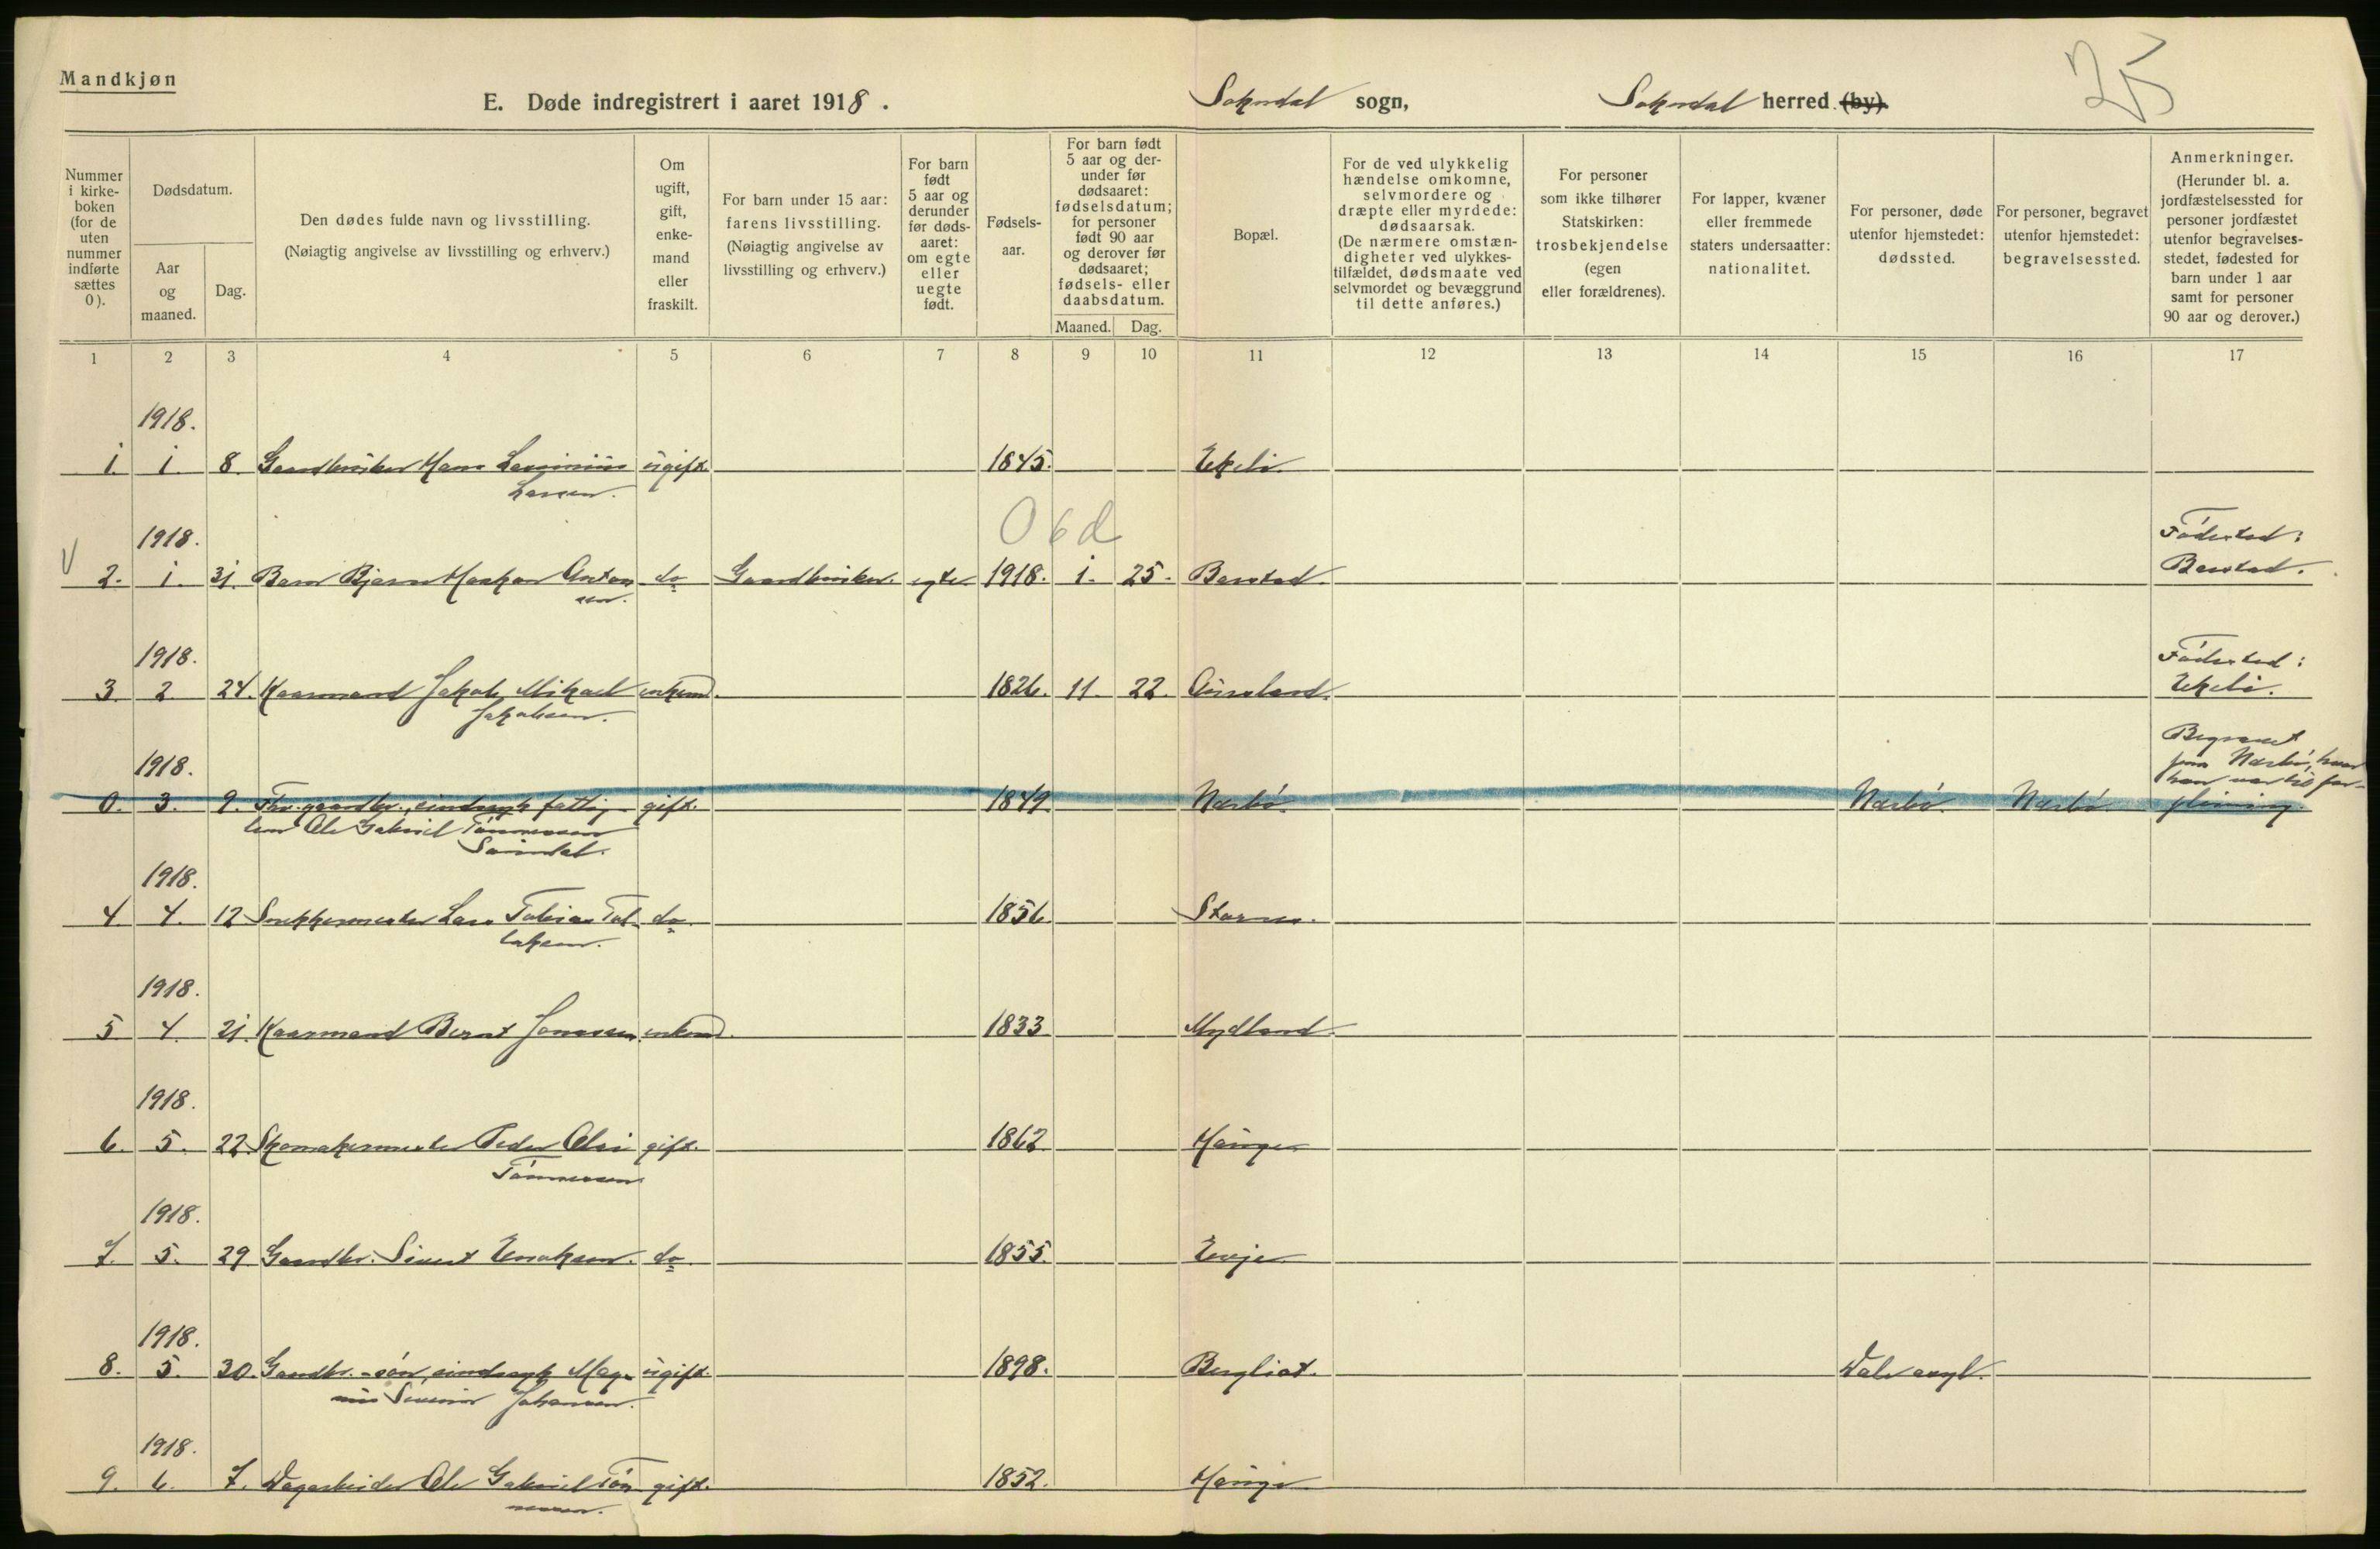 Mandkjøn
E. Døde indregistrert i aaret 1918.
Sokndal sogn, Sokndal herred (by)
25
Nummer i kirke-boken (for de uten nummer indførte sættes 0).
Dødsdatum.
Aar og maaned.
Dag.
Den dødes fulde navn og livsstilling.
(Nøiagtig angivelse av livsstilling og erhverv.)
Om ugift, gift, enke-mand eller fraskilt.
For barn under 15 aar: farens livsstilling.
(Nøiagtig angivelse av livsstilling og erhverv.)
For barn født 5 aar og derunder før døds-aaret: om egte eller uegte født.
Fødsels-aar.
For barn født 5 aar og der-under før dødsaaret: fødselsdatum; for personer født 90 aar og derover før dødsaaret; fødsels- eller daabsdatum.
Maaned.
Dag.
Bopæl.
For de ved ulykkelig hændelse omkomne, selvmordere og dræpte eller myrdede: dødsaarsak.
(De nærmere omstæn-digheter ved ulykkes-tilfældet, dødsmaate ved selvmordet og bevæggrund til dette anføres.)
For personer som ikke tilhører Statskirken: trosbekjendelse (egen eller forældrenes).
For lapper, kvæner eller fremmede staters undersaatter: nationalitet.
For personer, døde utenfor hjemstedet: dødssted.
For personer, begravet utenfor hjemstedet: begravelsessted.
Anmerkninger.
(Herunder bl. a. jordfæstelsessted for personer jordfæstet utenfor begravelses-stedet, fødested for barn under 1 aar samt for personer 90 aar og derover.)
1 2 3 4 5 6 7 8 9 10 11 12 13 14 15 16 17
1918.
1. 1. 8. Gaardbruker Hans ugift. 1845. Ekeli.
Larsen.
06d
1918. Födested:
V 2. 1. 31. Barn Bjarne Haakon Anton- do Gaardbruker. egte 1918. 1. 25. Barstad. Barstad.
sen.
1918. Födested:
3. 2. 24. Kaarmand Jakob Mikael enkem. 1826. 11. 22. Ekeli.
Jakobsen.
1918. Begravet
paa Nærbö, hvor
han var til for-
0. 3. 9. Fhv. gaardbr., sindssyk fattig- gift. 1849. Nærbö. Nærbö. Nærbö. pleining.
lem Ole Gabriel Tönnessen
1918.
4. 4. 12 Snekkermester Lars Tobias Tol- do. 1856.
laksen.
1918.
5. 4. 21. Kaarmand Bernt Jonassen. enkem. 1833. Mydland.
1918.
6. 5. 22. Skomakermester Peder Olai gift. 1862. Hauge.
Tönnessen
1918.
7. 5. 29 Gaardbr. Sivert Enoksen. do. 1855. Evje.
1918.
8. 5. 30. Gaardbr.-sön, sindssyk Mag- ugift. 1898. Bergliot. Dale asyl.
nus Severin Johansen.
1918.
9. 6. 7. Vegarbeider Ole Gabriel Tön- gift. 1852. Hauge
nessen.